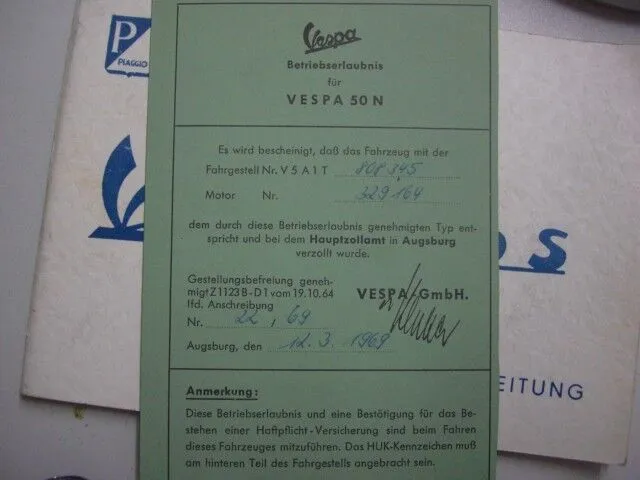 P
PIAGGIO
Vespa
Betriebserlaubnis
für
VESPA 50 N
Es wird bescheinigt, daß das Fahrzeug mit der
Fahrgestell Nr. V 5 A 1 T 808 345
Motor Nr. 329 164
dem durch diese Betriebserlaubnis genehmigten Typ ent-
spricht und bei dem Hauptzollamt in Augsburg
verzollt wurde.
Gestellungsbefreiung geneh-
migt Z 1123 B - D 1 vom 19.10.64
lfd. Anschreibung
VESPA GmbH.
Nr. 22 / 69
Augsburg, den 12. 3. 1969
Anmerkung:
Diese Betriebserlaubnis und eine Bestätigung für das Be-
stehen einer Haftpflicht-Versicherung sind beim Fahren
dieses Fahrzeuges mitzuführen. Das HUK-Kennzeichen muß
am hinteren Teil des Fahrgestells angebracht sein.
OS
EITUNG